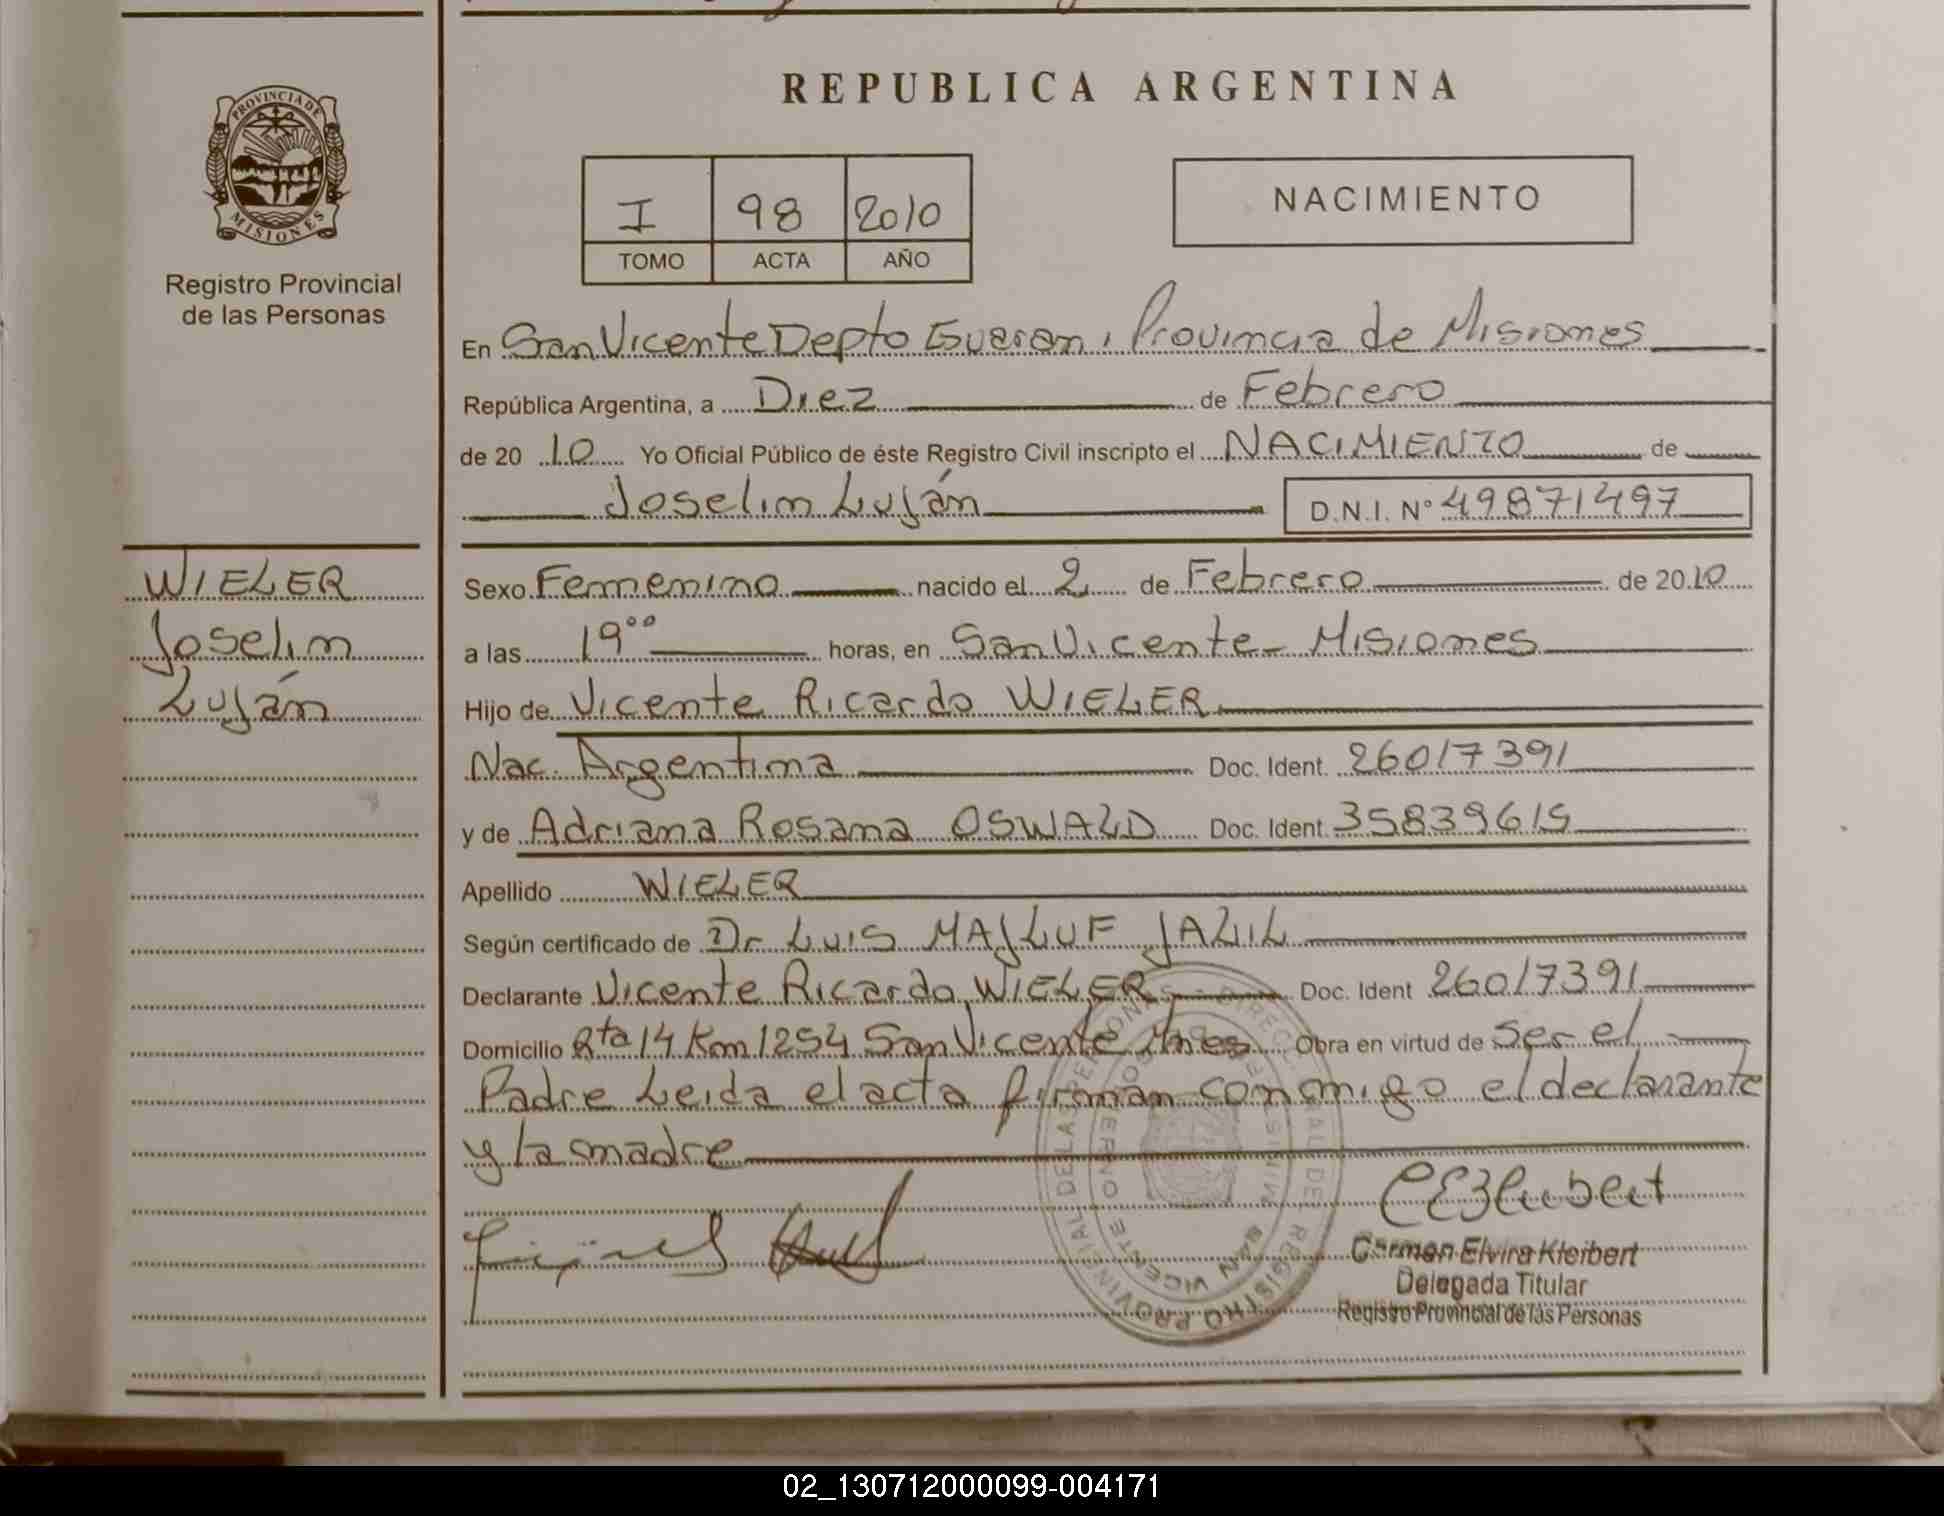 REPUBLICA ARGENTINA
PROVINCIA DE
MISIONES
Registro Provincial
de las Personas
I 98 2010
TOMO ACTA AÑO
NACIMIENTO
En San Vicente Depto Guaraní, Provincia de Misiones
República Argentina, a Diez de Febrero
de 20 10 Yo Oficial Público de éste Registro Civil inscripto el NACIMIENTO de
Joselin Luján D.N.I. Nº 49871497
WIELER
Joselin
Luján
Sexo Femenino nacido el 2 de Febrero de 20 10
a las 19⁰⁰ horas, en San Vicente - Misiones
Hijo de Vicente Ricardo WIELER
Nac. Argentina Doc. Ident. 26017391
y de Adriana Rosana OSWALD Doc. Ident. 35839615
Apellido WIELER
Según certificado de Dr LUIS MAJLUF JALIL
Declarante Vicente Ricardo WIELER Doc. Ident 26017391
Domicilio Rta 14 Km 1254 San Vicente Mnes Obra en virtud de ser el
Padre Leida el acta firman conmigo el declarante
y la madre
Carmen Elvira Kleibert
Delegada Titular
Registro Provincial de las Personas
02_130712000099-004171